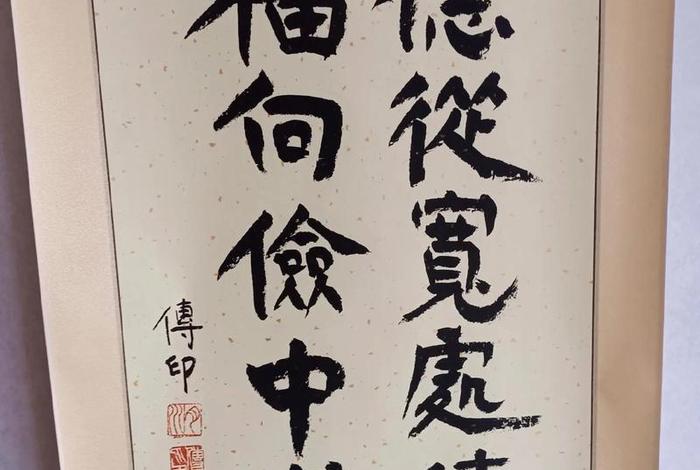 德從寬處
福向儉中
傳印